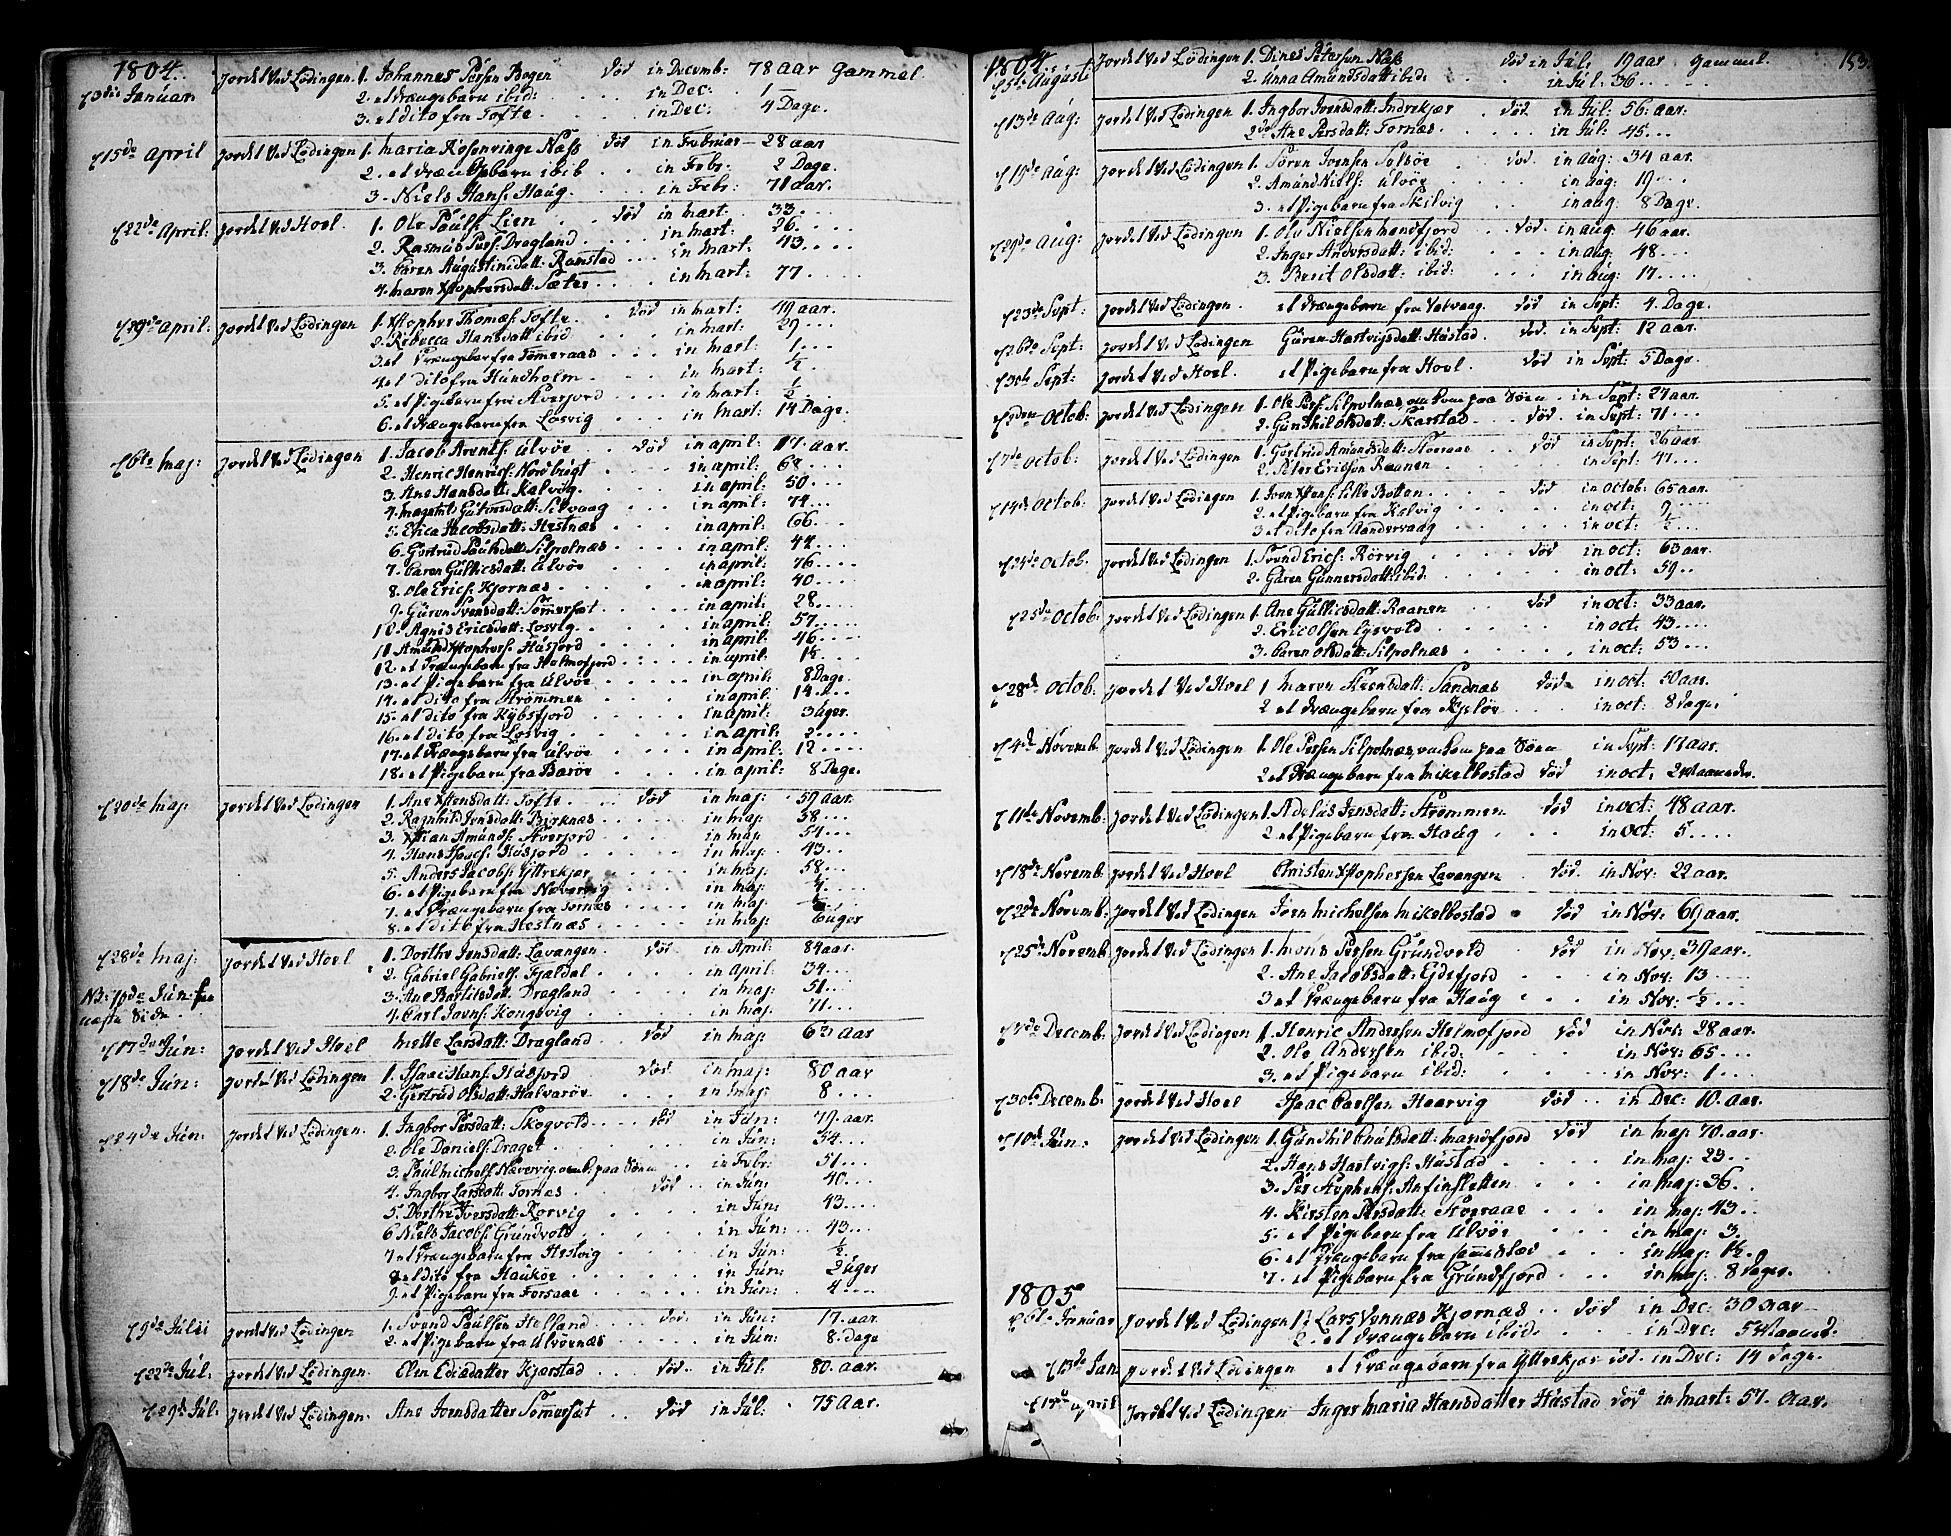 1804.
d 3die Januar. Jordet Ved Lødingen. 1. Johannes Persen Bogen Død in Decemb: 78 aar Gammel
2. et Drængebarn ibid: in Dec: 1 —
3. et dito fra Tofte in Dec: 4 Dage.
d 15de April Jordet Ved Lødingen 1. Maria Rosenvinge Næss Død in Februar — 28 aar
2. et Drængebarn ibib in Febr: 2 Dage.
3. Niels Hans: Haug. in Febr: 71 aar.
d 22de April: Jordet Ved Hoel. 1. Ole Pauls: Lien Død in Mart. 33
2. Rasmus Pers: Dragland in Mart: 26
3. Caren Augustinsdatt: Ramstad in Mart: 43
4. Maren Xstophersdatt: Sæter in Mart: 77
d 29de April: Jordet Ved Lødingen 1. Xstopher Thomæs: Tofte Død in Mart: 49 aar.
2. Rebecca Hansdatt ibid in Mart: 29
3. et Drængebar fra Tømeraas in Mart: 1
4. et dito fra Hundholm in Mart: ½
5. et Pigebarn fra Averjord in Mart: ½
6. et Drængebarn fra Losvig in Mart: 14 Dage.
d 6te Maj: Jordet Ved Lødingen 1. Jacob Arents: Ulvøe Død in april: 17. aar.
2. Henric Henrics: Nordbrigt in april: 68
3. Ane Hansdatt: Kalvig in april: 50
4. Magrethe Gutormsdatt: Silvaag in april: 74
5. Erica Jacobsdatt: Hestnæs in april: 66
6. Gertrud Paulsdatt: Silpolnæs in april: 42
7. Caren Gullicsdatt: Ulvøe in april: 76
8. Ole Erics: Kjornæs in april: 40
9. Guren Svensdatt: Sommersæt in april: 28
10. Agnis Ericsdatt: Losvig in april: 57
11. Amund Xstophers: Husjord in april: 46
12. et Drængebarn fra Holmofjord in april: 1½
13. et Pigebarn fra Ulvøe in april: 8 Dage.
14. et dito fra Strømmen in april: 14
15. et dito fra Kobsfjord in april: 3 uger.
16. et dito fra Losvig in april: 2
17. et Drængebarn fra Ulvøe in april: 12
18. et Pigebarn fra Barøe in april: 8 Dage.
d 20de Maj: Jordet Ved Lødingen 1. Ane Xstensdatt: Tofte Død in Maj: 59 aar.
2. Ragnhild Jensdatt: Birknæs in Maj: 38
3. Xstian Amunds: Averjord in Maj: 54
4. Hans Isacs: Husjord in Maj: 43
5. Anders Jacobs: Yttrekjær in Maj: 58
6. et Pigebarn fra Nevervig in Maj: ¼
7. et Drængebarn fra Tornæs in Maj: ½
8. et dito fra Hestnæs in Maj: 6 uger
d 28de Maj: Jordet Ved Hoel 1. Dorthe Jensdatt: Lavangen Død in April: 84 aar.
2. Gabriel Gabriels: Fjældal in April: 34
NB: 10de Jun: see 3. Ane Bartitsdatt: Dragland in Maj: 51
næste Side 4. Carl Jovns: Kongsvig in Maj: 71
d 17de Jun: Jordet Ved Hoel Mette Larsdatt: Dragland Død in Maj: 63 aar
d 18de Jun: Jordet Ved Lødingen 1. Isaac Hans: Husjord Død in Maj: 80 aar
2. Gertrud Olsdatt: Halvarøe in Maj: 8
d 24de Jun: Jordet Ved Lødingen. 1. Ingbor Persdatt: Skogvold Død in Jun: 79. aar.
2. Ole Daniels: Draget in Jun: 34
3. Paul Michels: Nævervig, omk: paa Søen in Febr: 51
4. Ingbor Larsdatt: Tornæs Død in Jun: 40
5. Dorthe Iversdatt: Rorvig in Jun: 43
6. Niels Jacobs: Grundvold in Jun: 43
7. et Drængebarn fra Hestvig in Jun: ½
8. et dito fra Haukøe in Jun: 2 uger
9. et Pigebarn fra Forsaae in Jun: 4
d 5de Julii Jordet Ved Lødingen 1. Svend Paulsen Helland Død in Jun: 17. aar
2. et Pigebarn fra Ulvøenæs in Jun: 8. Dage
d 22de Jul: Jordet Ved Lødingen. Elen Edisdatter Kjærstad Død. in Jul: 80. aar.
d 29de Jul: Jordet Ved Lødingen. Ane Jvensdatter Sommersæt Død in Jul: 75 aar.
1804.
153.
d 5te Augusti Jordet Ved Lødingen 1. Dines Petersen Næss Død in Jul: 19 aar gammel.
2. Anna Amundsdatt ibid: in Jul: 36
d 13de Aug: Jordet Ved Lødingen 1. Ingbor Iversdatt: Indrekjær Død in Jul: 56. aar.
2de Ane Persdatt: Tornæs in Jul: 45
d 19de Aug: Jordet Ved Lødingen 1. Søren Ivensen Salsøe Død. in Aug: 34 aar.
2. Amund Niels: Ulvøe in aug: 19
3. et Pigebarn fra Skilvig in aug. 8 Dage.
d 29de Aug: Jordet Ved Lødingen 1. Ole Nielsen Mandfjord Død. in aug. 46 aar.
2. Inger Andersdatt: ibid: in aug: 48
3. Berit Olsdatt: ibid: in aug: 17
d 23de Sept: Jordet Ved Lødingen. et Drængebarn fra Valvaag. Død in Sept: 4. Dage.
d 26de Sept: Jordet Ved Lødingen Guren Hartvigsdatt: Hustad. Død. in Sept: 12 aar.
d 30te Sept: Jordet Ved Hoel. et Pigebarn fra Hoel. Død in Sept: 5 Dage
d 2den Octob: Jordet Ved Lødingen 1. Ole Pers: Silpolnæs, omkom paa Søen in Sept: 27 aar.
2. Gunhil Olsdatt: Skarstad Død. in Sept: 71
d 7de Octob: Jordet Ved Lødingen 1. Gertrud Amundsdatt: Storaae Død in Sept: 26 aar.
2. Peter Ericsen Raanen in Sept: 47
d 14de Octob: Jordet Ved Lødingen 1. Iven Xstens: Lille Botten Død in Octob: 65 aar.
2. et Pigebarn fra Kalvig in oct: 9
3. et dito fra Sandervaag in oct: ½
d 24de Octob. Jordet Ved Lødingen 1. Svend Erics: Rørvig Død in oct: 63 aar.
2. Guren Gunnersdatt: ibid: in oct: 59
d 25de Octob: Jordet Ved Lødingen 1. Ane Gullicsdatt: Raanen Død in oct: 33 aar.
2. Eric Olsen Lysvold in oct: 43
3. Caren Olsdatt: Silpolnæs in oct: 53
d 28de Octob: Jordet Ved Hoel 1 Maren Steensdatt: Sandnæs Død in oct: 50 aar.
2 et Drængebarn fra Kjeløe in oct: 8 Dage.
d 4de Novemb: Jordet Ved Lødingen 1. Ole Persen Silpolnæs, omkom paa Søen in Sept: 17 aar.
2 et Drængebarn fra Mikelbostad Død in oct: 2 Maaneder.
d 11te Novemb: Jordet Ved Lødingen 1 Adelus Jensdatt: Strømmen Død in oct: 48 aar.
2 et Pigebarn fra Haug in oct: 5
d 18de Novemb: Jordet Ved Hoel Christen Xstophersen Lavangen Død. in Nov: 22 aar.
d 22de Novemb: Jordet Ved Lødingen Joen Michelsen Mikelbostad Død in Nov: 69 aar.
d 25de Novemb: Jordet Ved Lødingen 1. Mons Persen Grundvold Død in Nov: 39 aar.
2. Ane Jacobsdatt: Ejdefjord in Nov: 13
3 et Drængebarn fra Haug in Nov: ½
d 2de Decemb: Jordet Ved Lødingen 1. Henric Andersen Helmofjord Død in Nov: 28 aar.
2. Ole Andersen ibid: in Nov: 65
3. et Pigebarn ibid: in Nov: 1
d 30te Decemb: Jordet Ved Hoel Isaac Carlsen Haarvig Død in Dec: 10. aar.
d 10de Jun: Jordet Ved Lødingen 1. Gundhil Poulsdatt: Mandfjord Død in Maj: 70. aar.
2. Hans Hartvigs: Hustad in Maj: 23
3. Per Xstophers: Anfinsletten in Maj: 36
4. Kirsten Persdatt: Storaae in Maj: 43
5. et Pigebarn fra Ulvøe in Maj: 3.
6. et Drængebarn fra in Maj: 1½
7. et Pigebarn fra Grundfjord in Maj: 8 Dage.
1805
d 6te Januar Jordet Ved Lødingen 1: Lars Jonnæs Kjornæs Død in Dec: 30 aar
2. et Drængebarn ibid. in Dec: 5 Maaned.
d 13de Jan Jordet Ved Lødingen et Drængebarn fra Yttrekjær Død. in Dec: 14 Dage.
April Jordet Ved Lødingen Inger Maria Hansdatter Hustad Død in Mart: 57. aar.